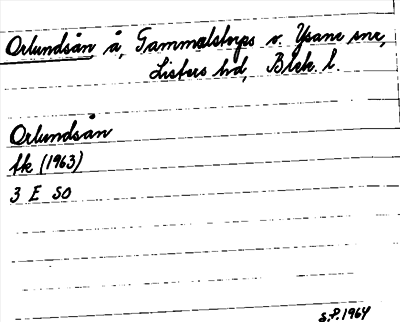 Orlundsån å, Gammalstorps o. Ysane snr,
Listers hd, Blek. l.
Orlundsån
fk (1963)
3 E SO
S.P. 1964